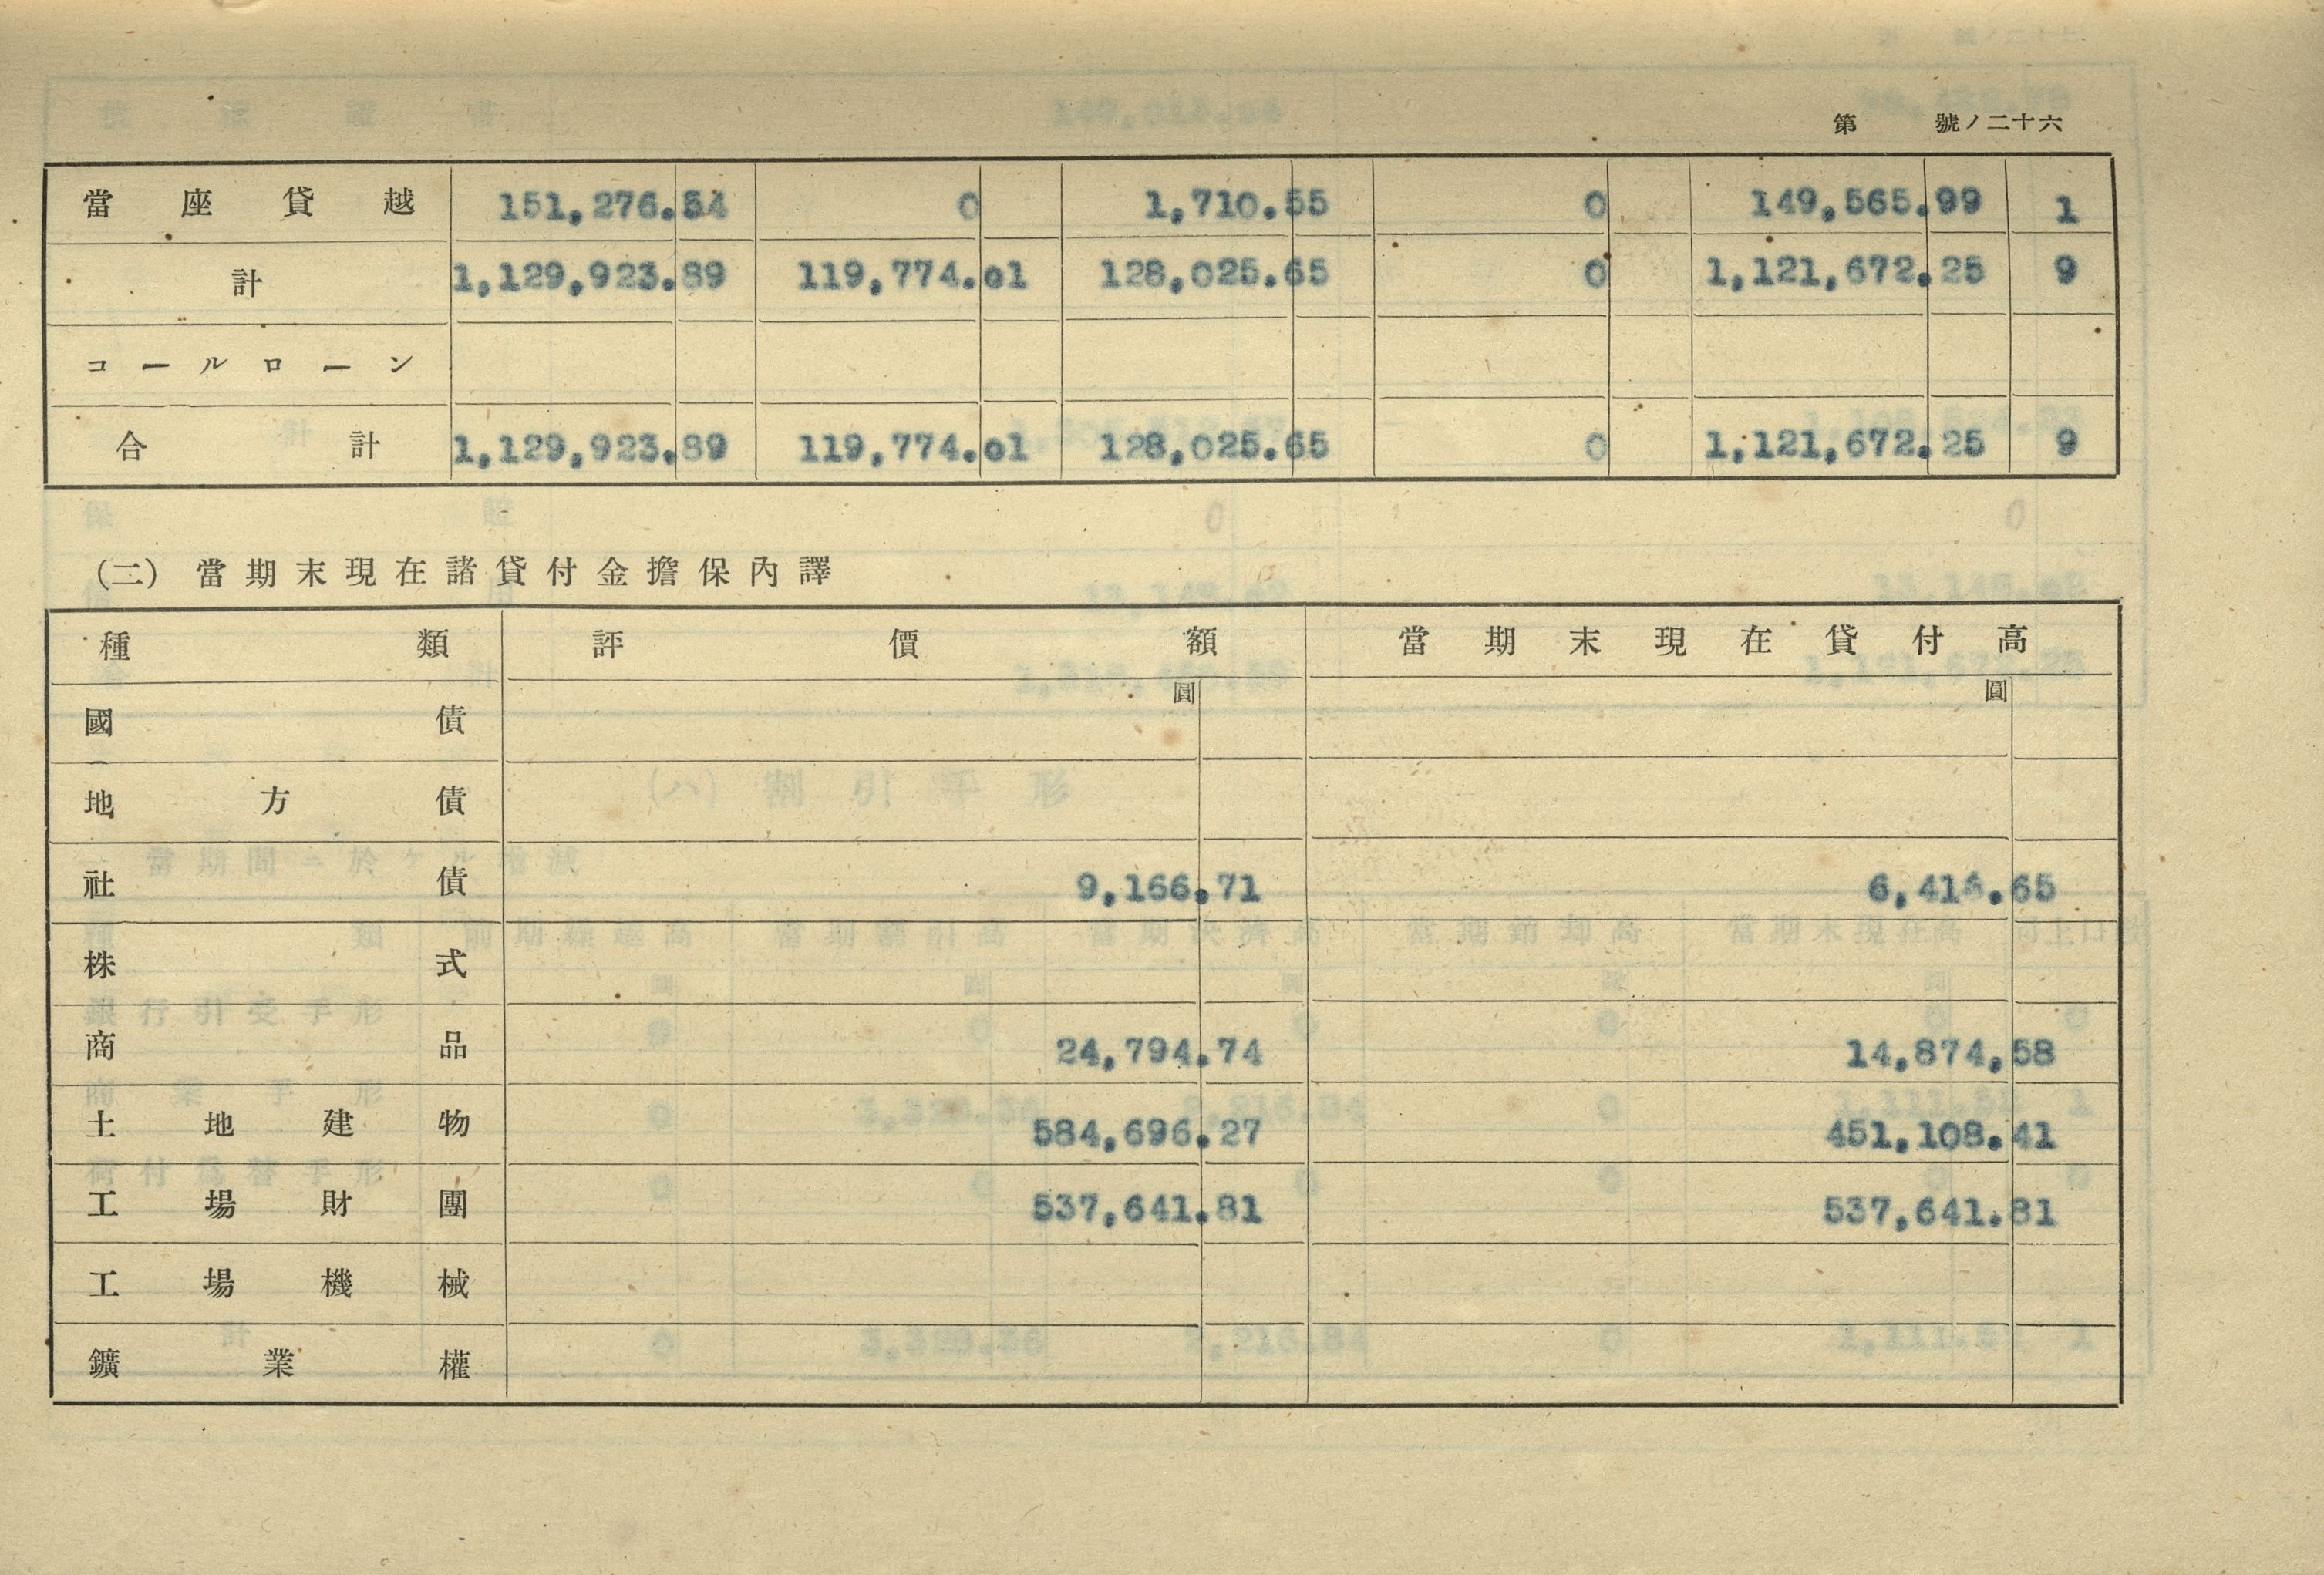 第 號ノ二十六
當座貸越 151,276.54 0 1,710.55 0 149,565.99 1
計 1,129,923.89 119,774.01 128,025.65 0 1,121,672.25 9
コールローン
合計 1,129,923.89 119,774.01 128,025.65 0 1,121,672.25 9
(二) 當期末現在諸貸付金擔保內譯
種類 評價額 當期末現在貸付高
圓 圓
國債
地方債
社債 9,166.71 6,416.65
株式
商品 24,794.74 14,874.58
土地建物 584,696.27 451,108.41
工場財團 537,641.81 537,641.81
工場機械
鑛業權